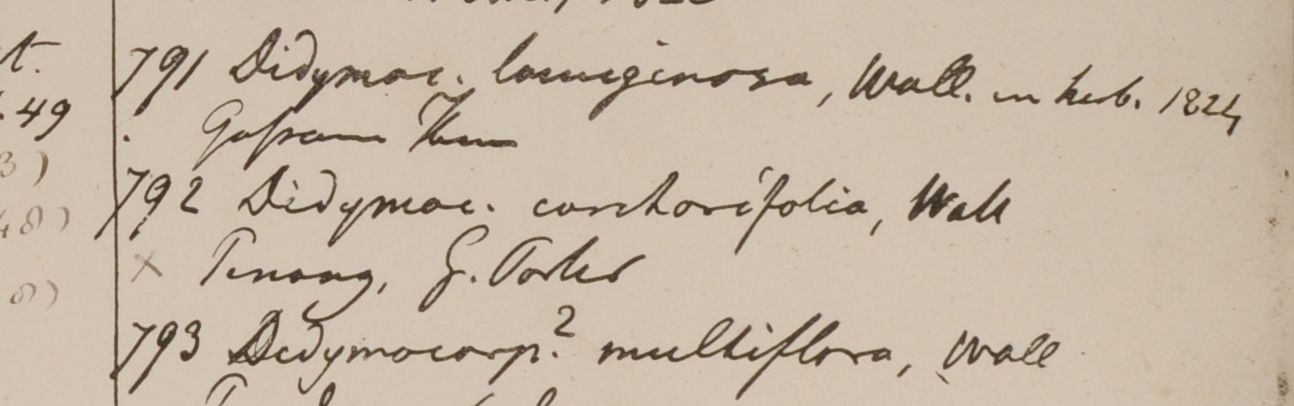 t. 791 Didymoc. lanuginosa, Wall. in herb. 1824
49 Gossam Than
3)
792 Didymoc. corchorifolia, Wall
48)
× Penang, G. Porter
8)
793 Didymocarp.? multiflora, Wall